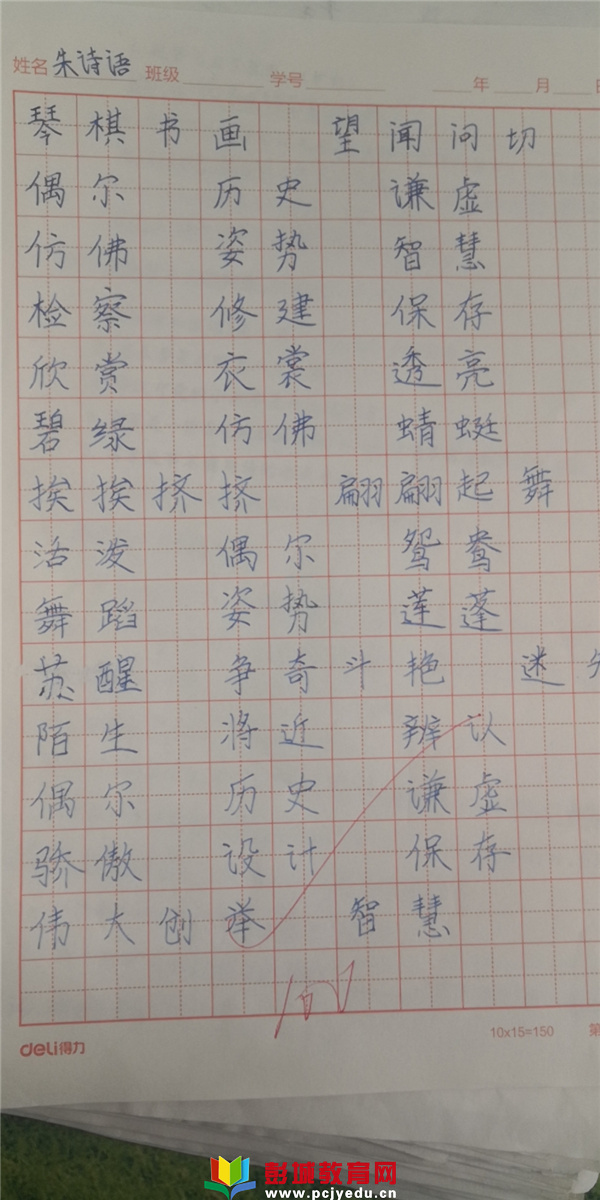 姓名 朱诗语 班级 学号 年 月
琴棋书画 望闻问切
偶尔 历史 谦虚
仿佛 姿势 智慧
检察 修建 保存
欣赏 衣裳 透亮
碧绿 仿佛 蜻蜓
挨挨挤挤 翩翩起舞
活泼 偶尔 鸳鸯
舞蹈 姿势 莲蓬
苏醒 争奇斗艳 迷
陌生 将近 辨认
偶尔 历史 谦虚
骄傲 设计 保存
伟大创举 智慧
deli得力 10x15=150 第
彭城教育网
www.pcjyedu.cn